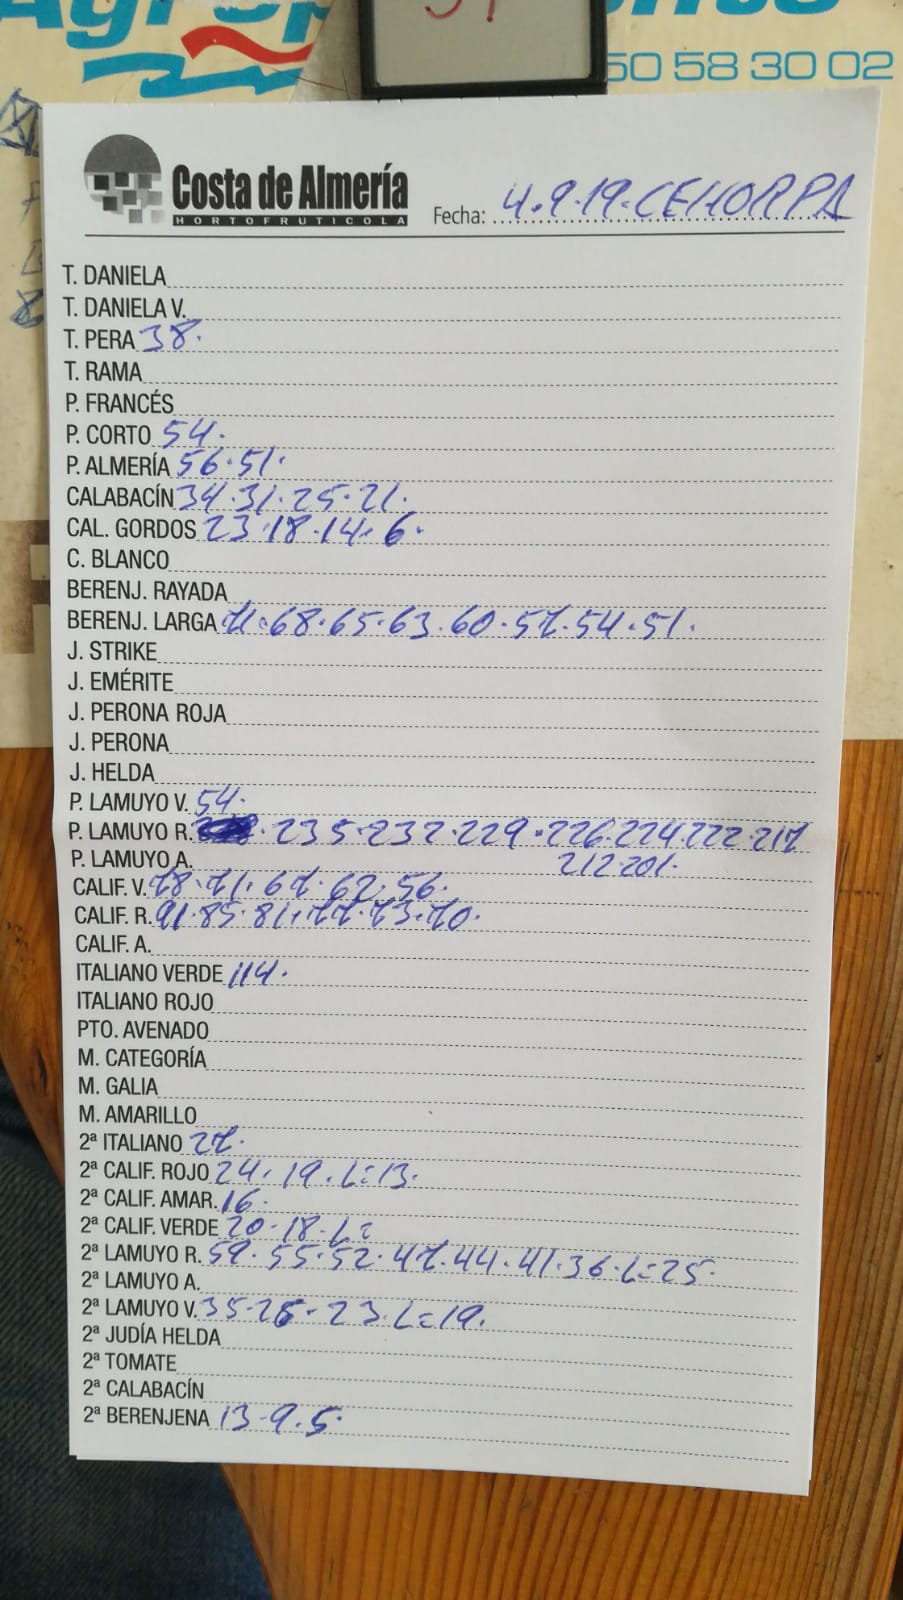 50 58 30 02
Costa de Almería
HORTOFRUTICOLA
Fecha: 4.9.19.CEHORPA
T. DANIELA
T. DANIELA V.
T. PERA 38.
T. RAMA
P. FRANCÉS
P. CORTO 54.
P. ALMERÍA 56.51.
CALABACÍN 34.31.25.21.
CAL. GORDOS 23.18.14.6.
C. BLANCO
BERENJ. RAYADA
BERENJ. LARGA 71.68.65.63.60.57.54.51.
J. STRIKE
J. EMÉRITE
J. PERONA ROJA
J. PERONA
J. HELDA
P. LAMUYO V. 54.
P. LAMUYO R. .235.232.229.226.224.222.217
212.201.
P. LAMUYO A.
CALIF. V. 78.71.67.62.56.
CALIF. R. 91.85.81.77.73.70.
CALIF. A.
ITALIANO VERDE 114.
ITALIANO ROJO
PTO. AVENADO
M. CATEGORÍA
M. GALIA
M. AMARILLO
2ª ITALIANO 27.
2ª CALIF. ROJO 24.19.L=13.
2ª CALIF. AMAR. 16.
2ª CALIF. VERDE 20.18.L=
2ª LAMUYO R. 59.55.52.47.44.41.36.L=25.
2ª LAMUYO A.
2ª LAMUYO V. 35-28-23.L=19.
2ª JUDÍA HELDA
2ª TOMATE
2ª CALABACÍN
2ª BERENJENA 13-9.5.